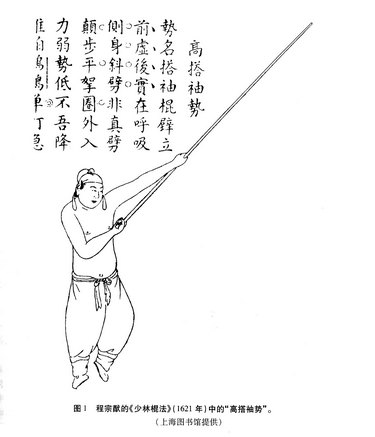 高搭袖勢
勢名搭袖棍壁立
前虛後實在呼吸
側身斜劈非真劈
顛步平拏圈外入
力弱勢低不吾降
图1 程宗猷的《少林棍法》(1621 年)中的“高搭袖势”。
(上海图书馆提供)